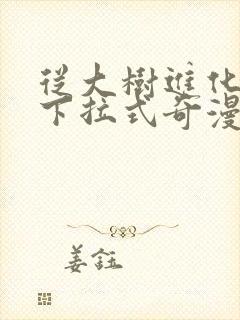 從大樹進化
下拉式奇漫
姜鈺